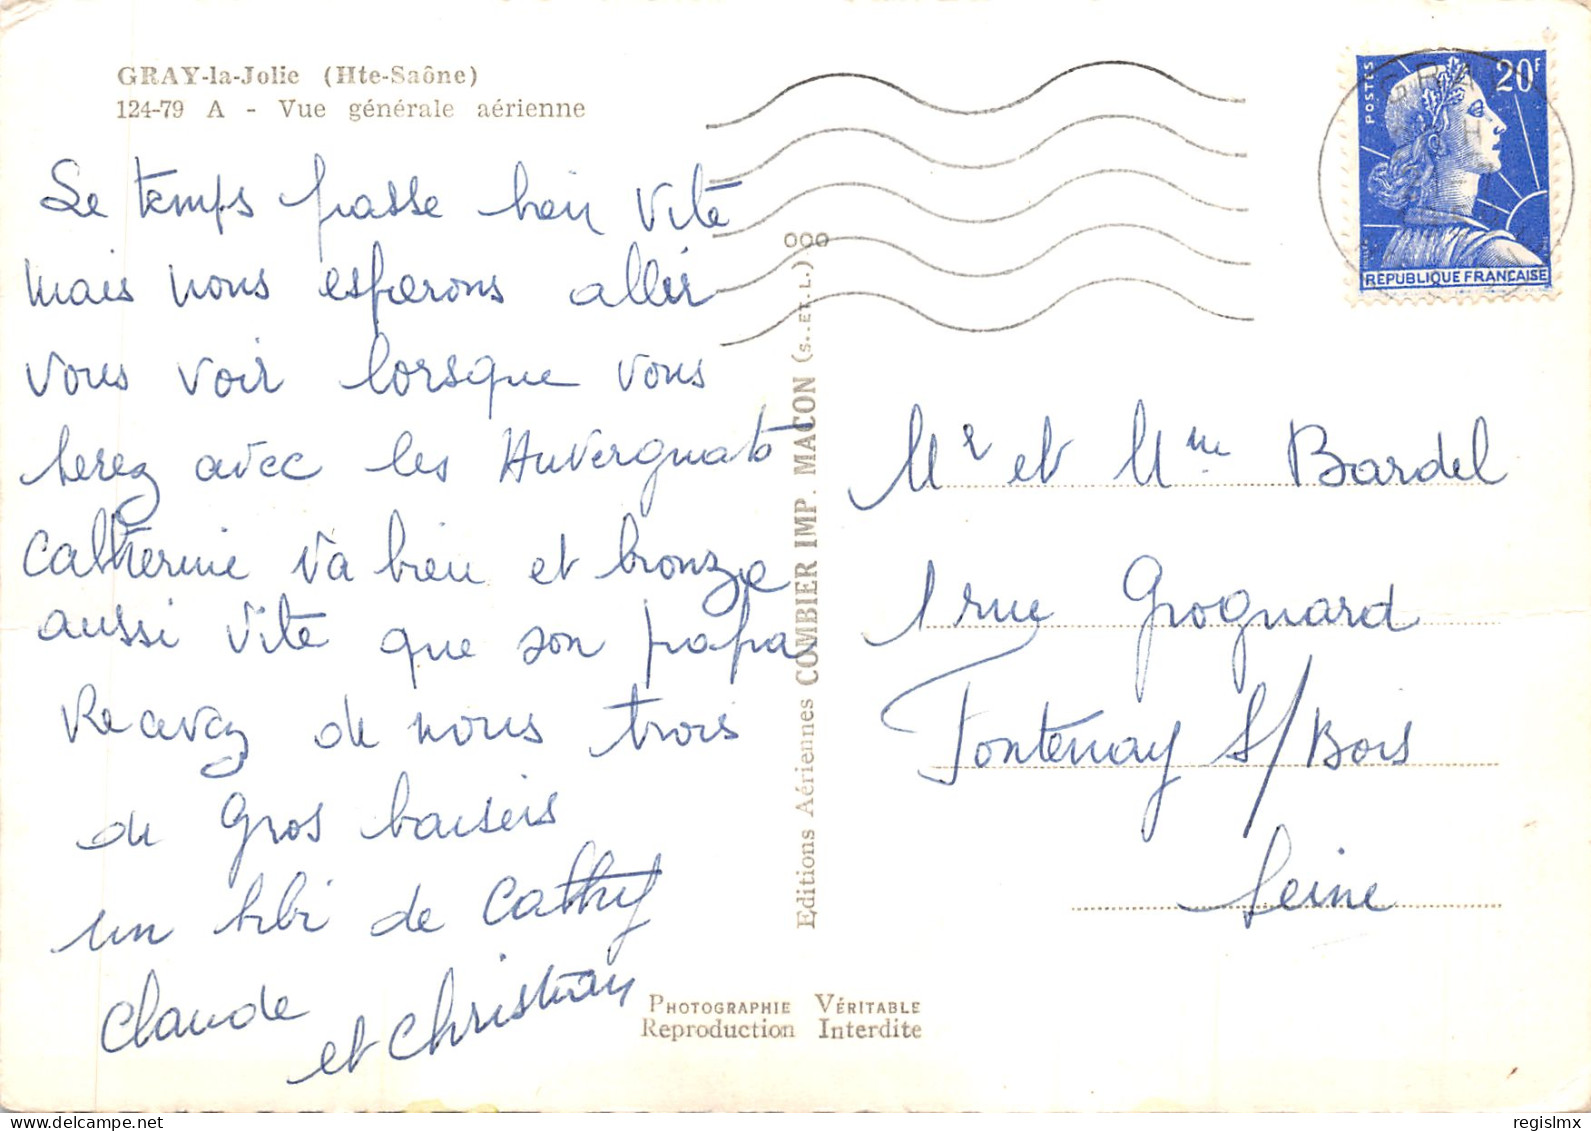 GRAY-la-Jolie (Hte-Saône)
124-79 A - Vue générale aérienne
Le temps passe bien vite
mais nous espérons aller
vous voir lorsque vous
serez avec les Auvergnats
Catherine va bien et bronze
aussi vite que son papa
Recevez de nous trois
de gros baisers
un bibi de Cathy
Claude
et Christian
Editions Aériennes COMBIER IMP. MACON (S.-ET-L.)
PHOTOGRAPHIE VÉRITABLE
Reproduction Interdite
GRAY
POSTES
20F
REPUBLIQUE FRANÇAISE
Mr et Mme Bardel
1 rue Grognard
Fontenay S/Bois
Seine
regislmx